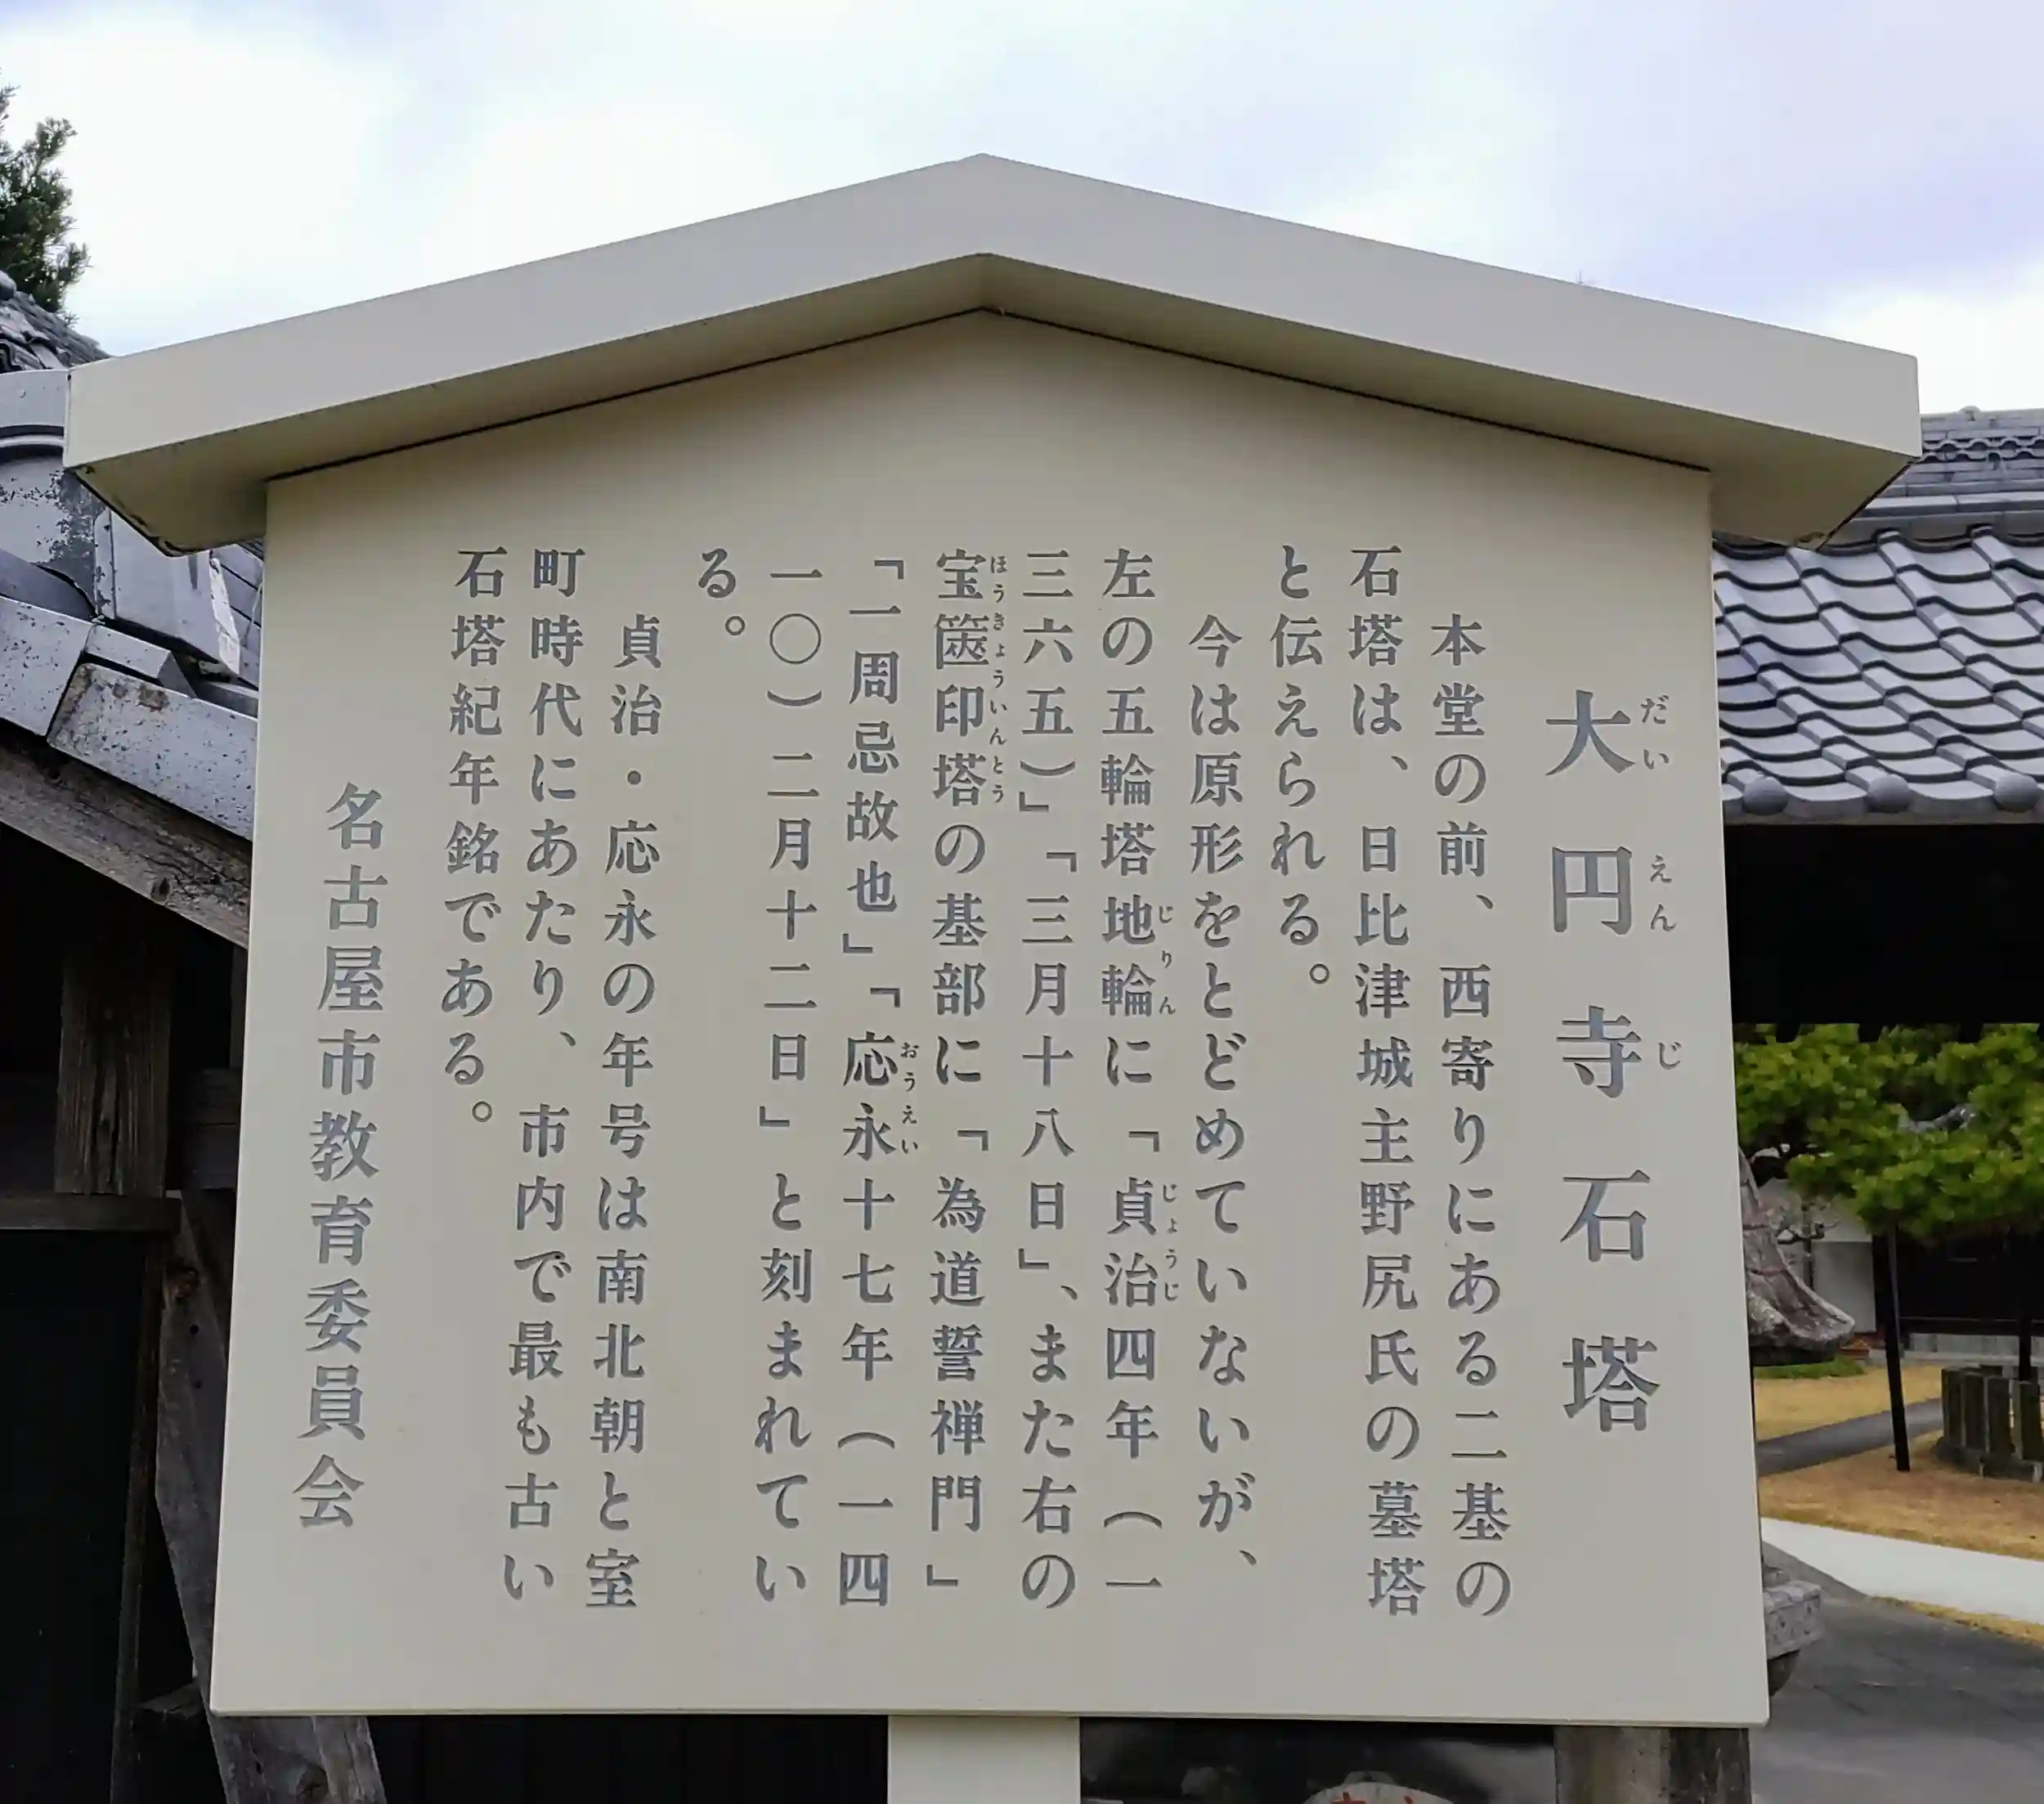 大円寺石塔
本堂の前、西寄りにある二基の
石塔は、日比津城主野尻氏の墓塔
と伝えられる。
今は原形をとどめていないが、
左の五輪塔地輪に「貞治四年（一
三六五）」「三月十八日」、また右の
宝篋印塔の基部に「為道誓禅門」
「一周忌故也」「応永十七年（一四
一〇）二月十二日」と刻まれてい
る。
貞治・応永の年号は南北朝と室
町時代にあたり、市内で最も古い
石塔紀年銘である。
名古屋市教育委員会